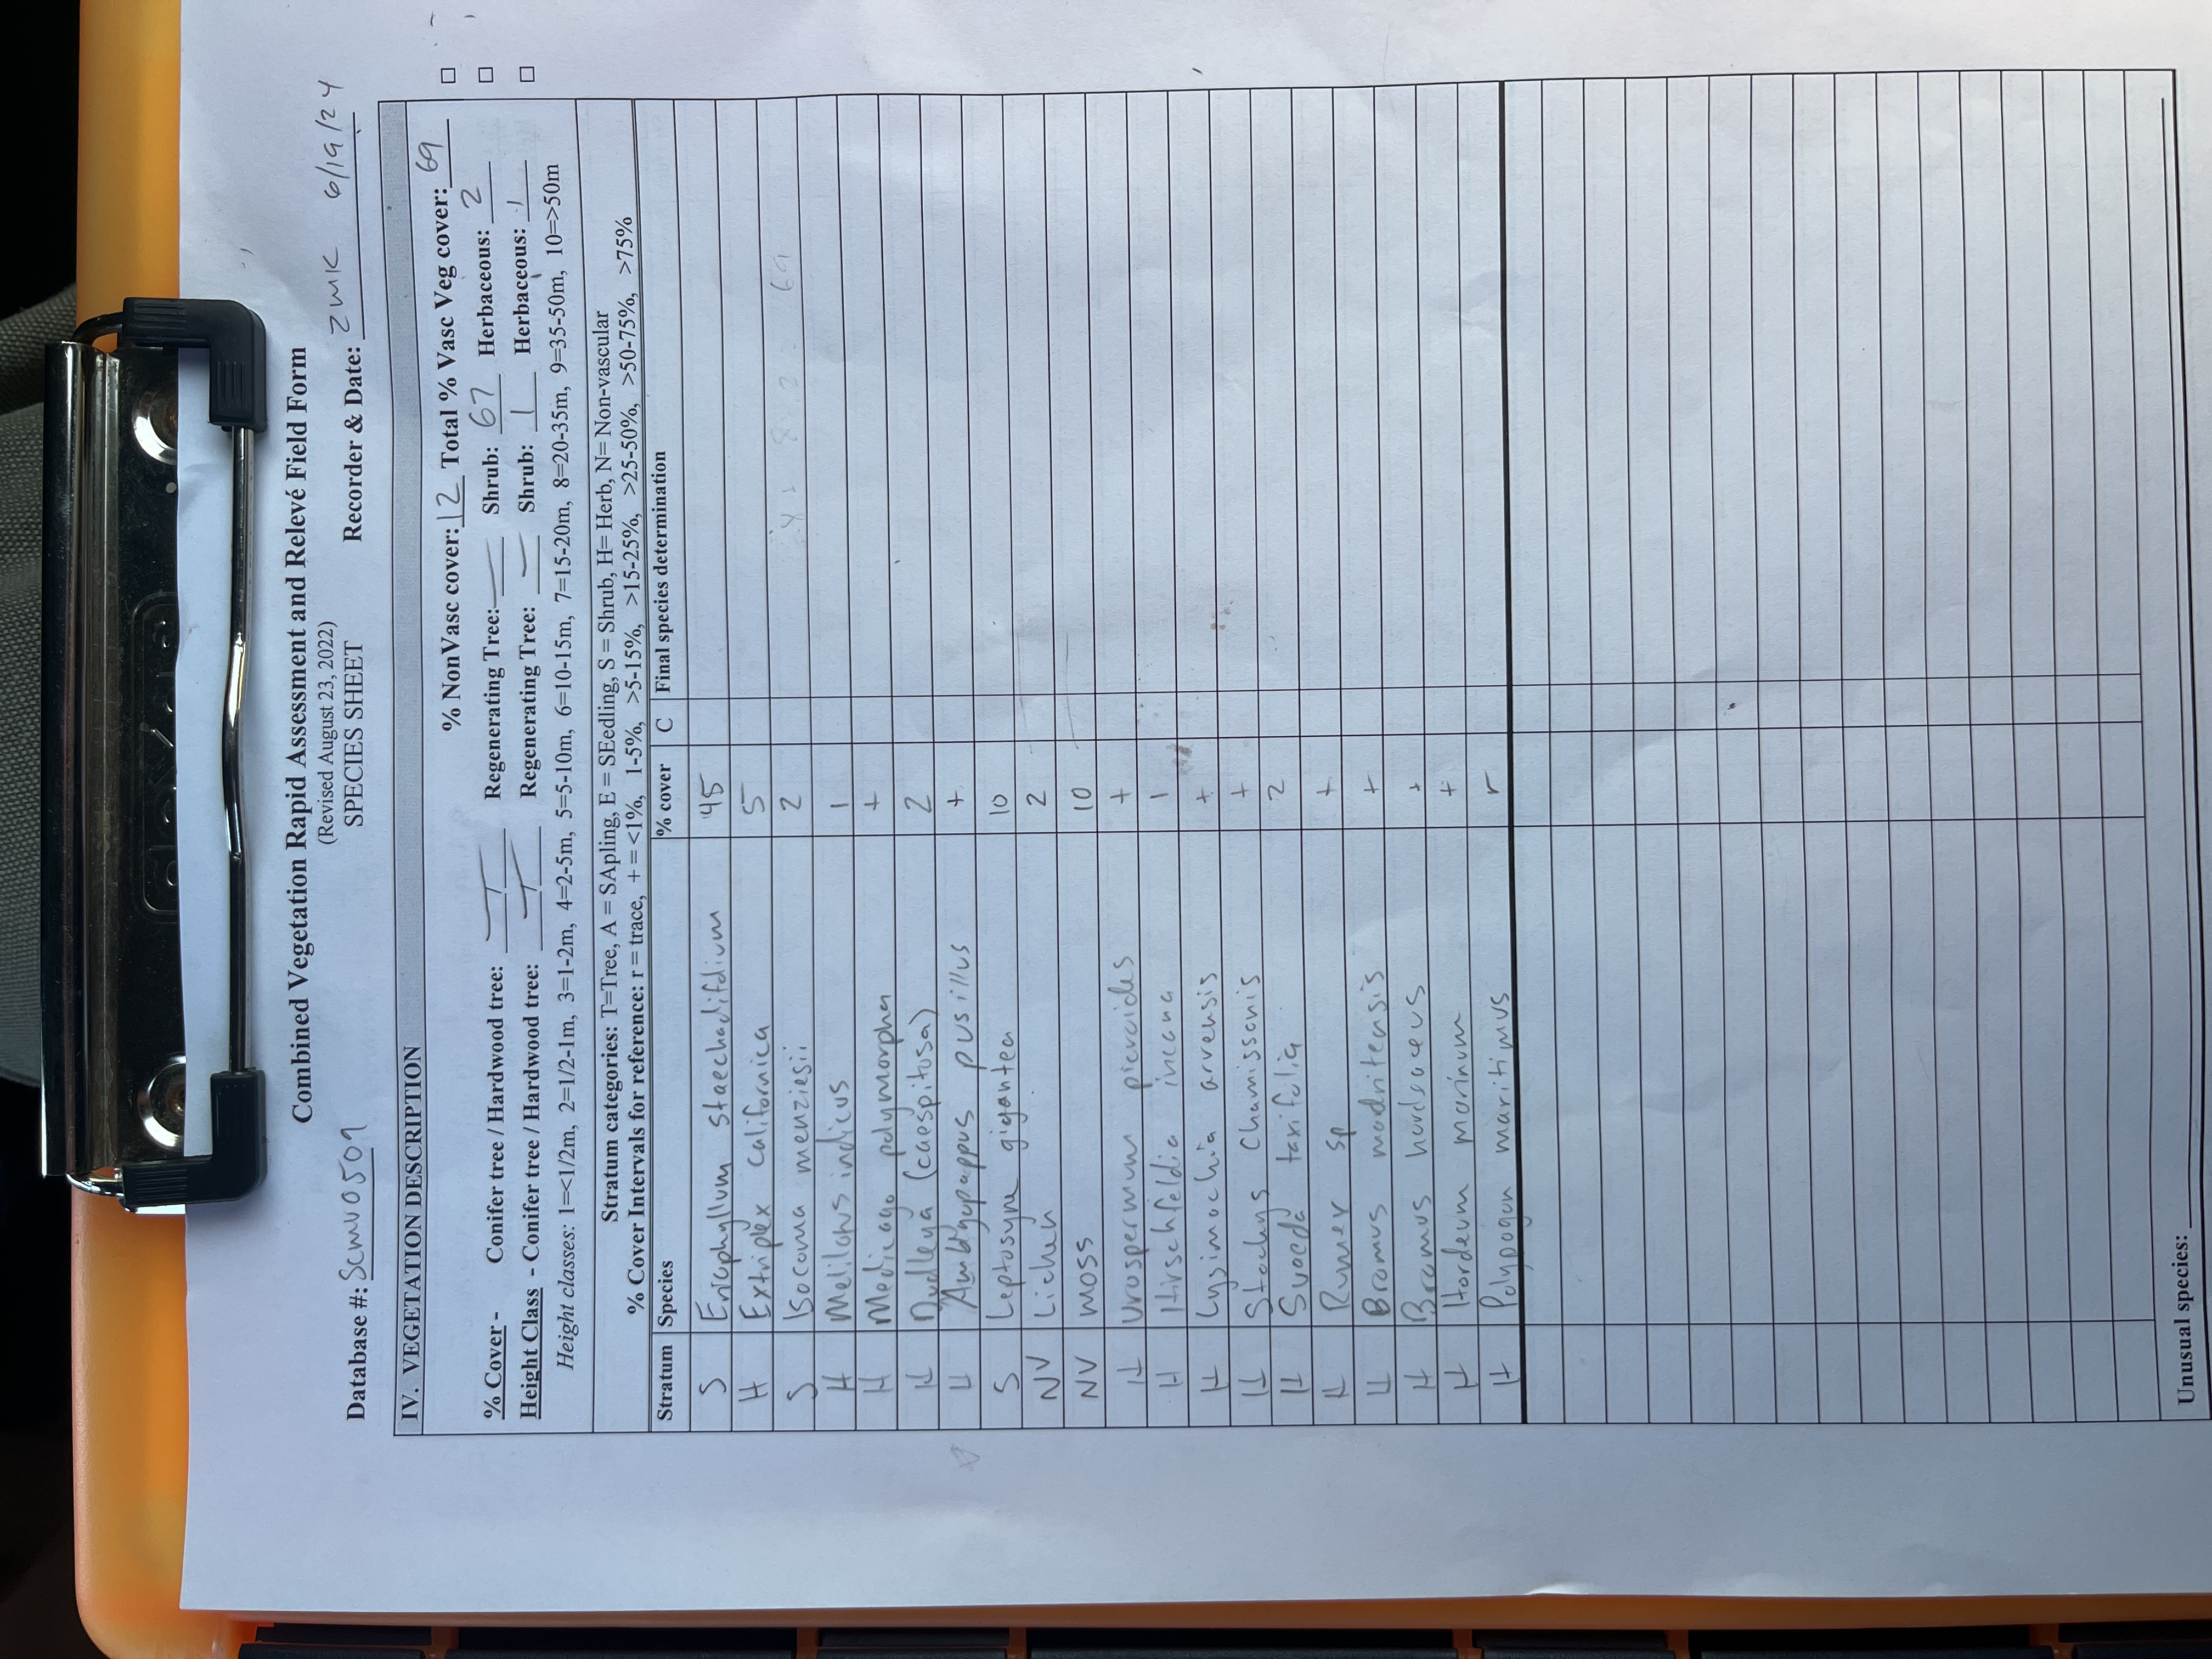 Combined Vegetation Rapid Assessment and Relevé Field Form
(Revised August 23, 2022)
SPECIES SHEET
Database #: Scmv0509 Recorder & Date: ZMK 6/19/24
IV. VEGETATION DESCRIPTION
% NonVasc cover: 12 Total % Vasc Veg cover: 69
% Cover - Conifer tree / Hardwood tree: — / — Regenerating Tree: — Shrub: 67 Herbaceous: 2
Height Class - Conifer tree / Hardwood tree: — / — Regenerating Tree: — Shrub: 1 Herbaceous: 1
Height classes: 1=<1/2m, 2=1/2-1m, 3=1-2m, 4=2-5m, 5=5-10m, 6=10-15m, 7=15-20m, 8=20-35m, 9=35-50m, 10=>50m
Stratum categories: T=Tree, A = SApling, E = SEedling, S = Shrub, H= Herb, N= Non-vascular
% Cover Intervals for reference: r = trace, + = <1%, 1-5%, >5-15%, >15-25%, >25-50%, >50-75%, >75%
Stratum Species % cover C Final species determination
S Eriophyllum staechadifolium 45
H Extriplex californica 5
S Isocoma menziesii 2
H Melilotus indicus 1
H Medicago polymorpha +
H Dudleya (caespitosa) 2
H Amblyopappus pusillus +
S Leptosyne gigantea 10
NV Lichen 2
NV moss 10
H Urospermum picroides +
H Hirschfeldia incana 1
H Lysimachia arvensis +
H Stachys Chamissonis +
H Suaeda taxifolia 2
H Rumex sp +
H Bromus madritensis +
H Bromus hordeaceus +
H Hordeum marinum +
H Polypogon maritimus r
Unusual species: